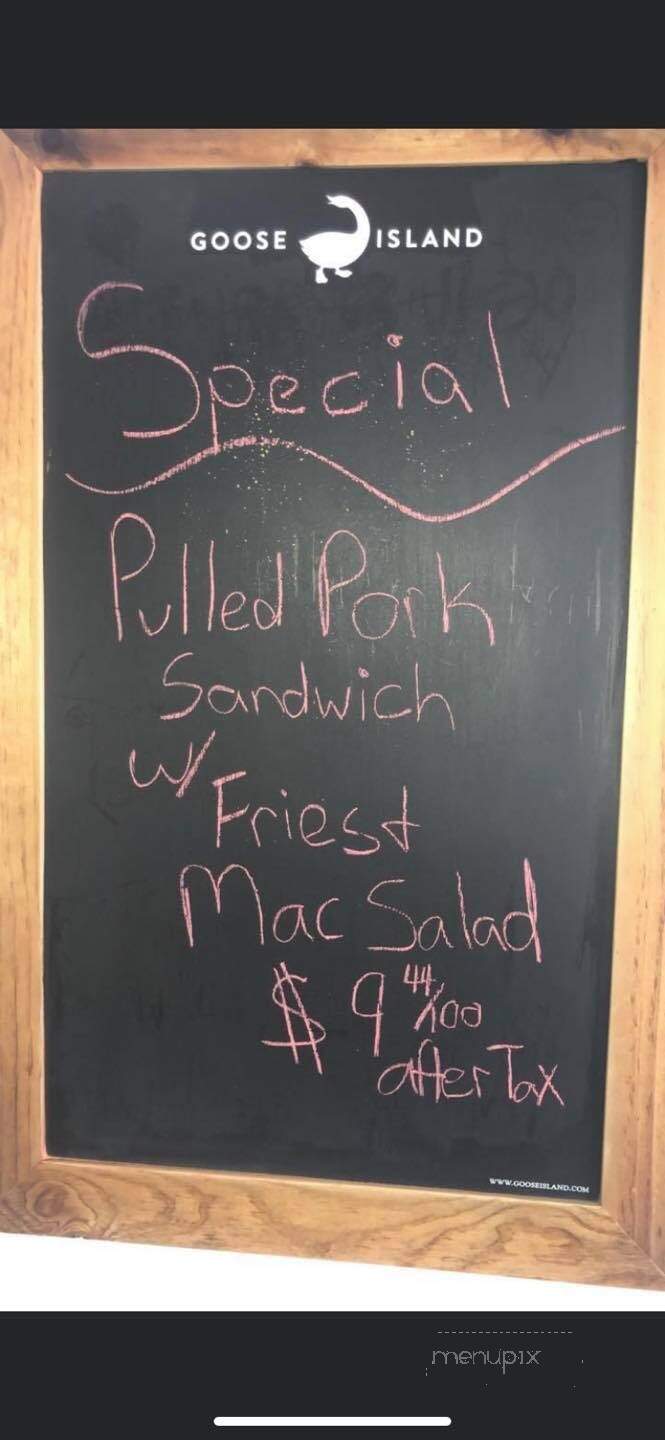 GOOSE ISLAND
Special
Pulled Pork
Sandwich
w/
Fries+
Mac Salad
$9 44/100
after Tax
WWW.GOOSEISLAND.COM
menupix